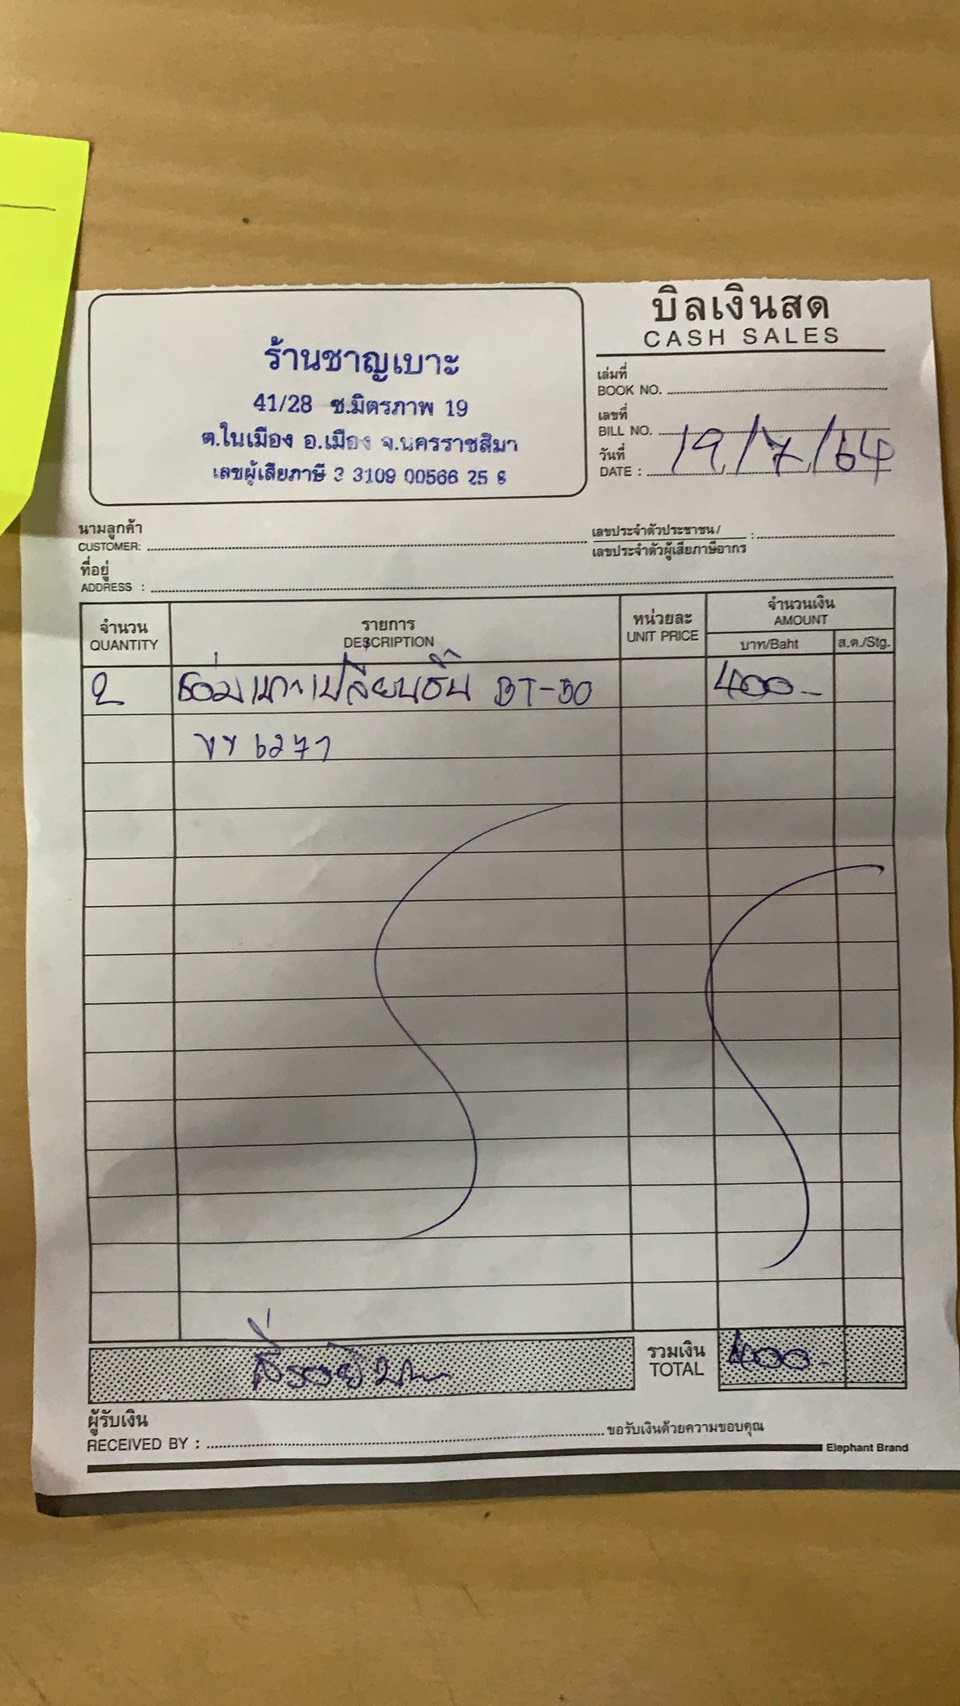 บิลเงินสด
CASH SALES
ร้านชาญเบาะ
41/28 ซ.มิตรภาพ 19
ต.ในเมือง อ.เมือง จ.นครราชสีมา
เลขผู้เสียภาษี 3 3109 00566 25 8
เล่มที่
BOOK NO.
เลขที่
BILL NO.
วันที่
DATE : 19/7/64
นามลูกค้า
CUSTOMER:
เลขประจำตัวประชาชน/
เลขประจำตัวผู้เสียภาษีอากร :
ที่อยู่
ADDRESS :
จำนวน รายการ หน่วยละ จำนวนเงิน
QUANTITY DESCRIPTION UNIT PRICE AMOUNT
บาท/Baht ส.ต./Stg.
2 ซ่อมเบาะเปลี่ยนชิ้น BT-50 400-
6277
สี่ร้อยบาท รวมเงิน 400-
TOTAL
ผู้รับเงิน
RECEIVED BY : ขอรับเงินด้วยความขอบคุณ
Elephant Brand